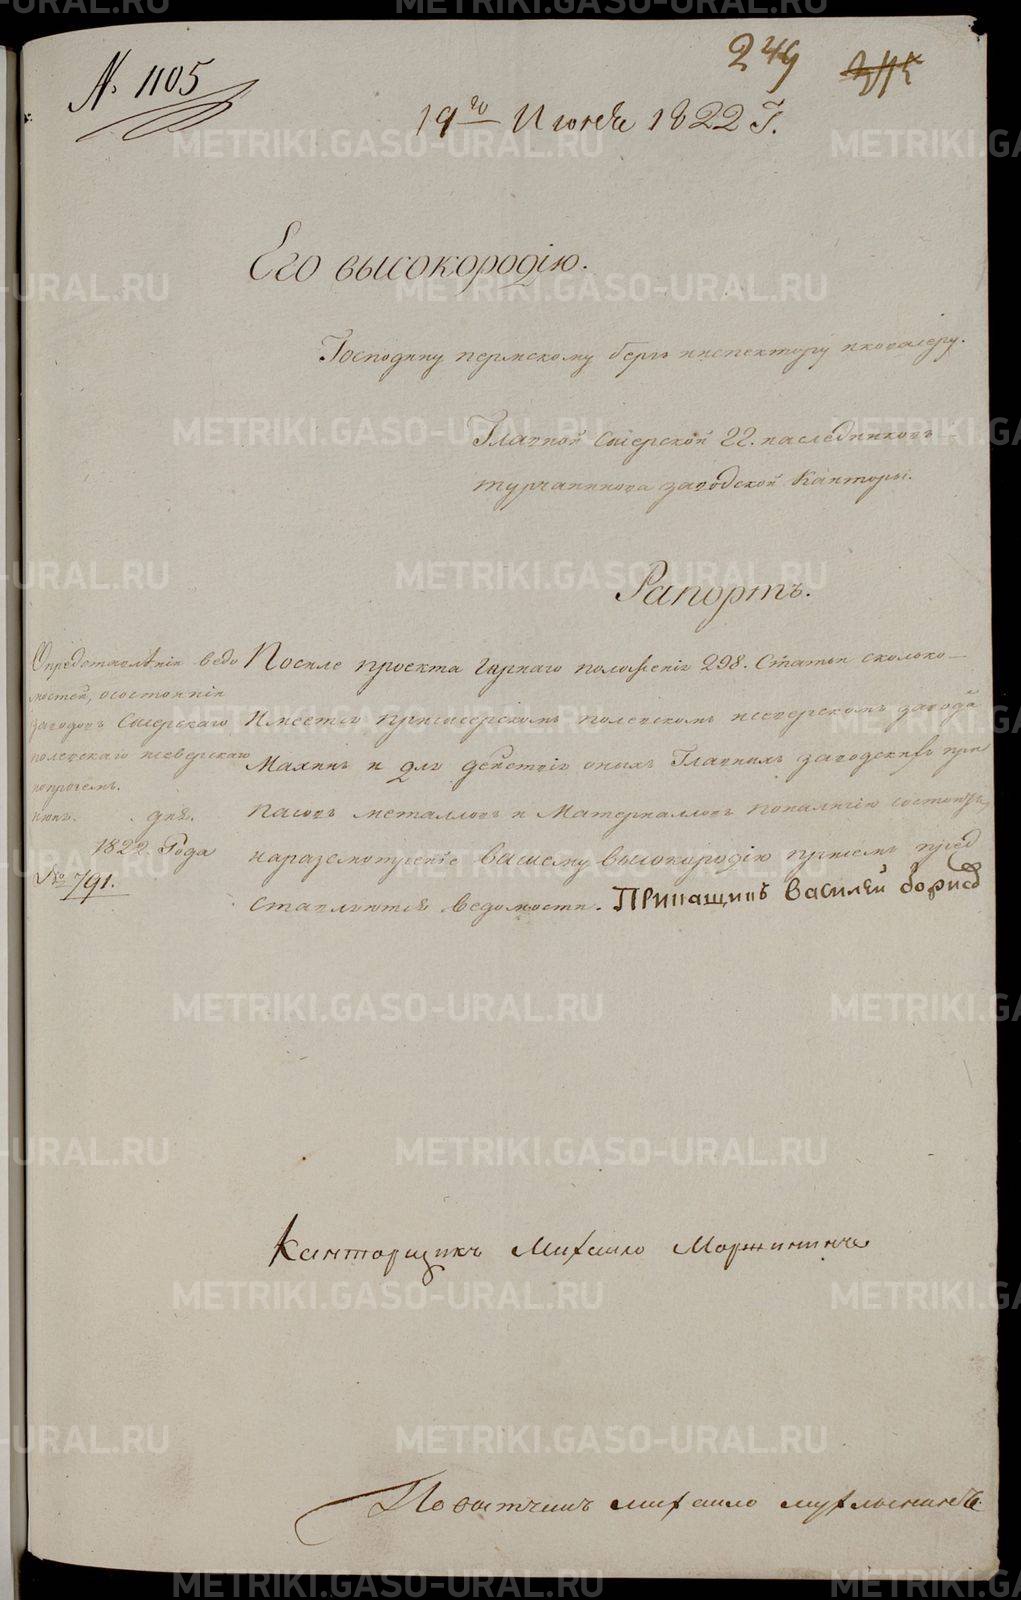 № 1105
249
19го Июня 1822 Г.
Его высокородію.
Господину пермскому бергъ инспектору икавалеру.
Главной Сысерской гг. наследниковъ
турчанинова заводской Канторы.
Рапортъ.
Опредставленіи ведо
мостей, осостояніи
заводовъ Сысерскаго
полевскаго исеверскаго
ипрочемъ.
июня. дня.
1822. Года
№ 791.
Посиле проекта Горнаго положеніе 298. Статьи сколько
Имеетсо присысерскомъ полевскомъ исеверскомъ заводѣ
Махинъ и для действіе оныхъ Главныхъ заводскихъ при
пасовъ металловъ и Матеріаловъ поналичію состоитъ,
наразсмотреніе вашему высокородію присемъ пред
ставляются ведомости. Прикащикъ Василей Борисов
Канторщикъ Михаило Моржининъ
Повытчикъ михаило
METRIKI.GASO-URAL.RU